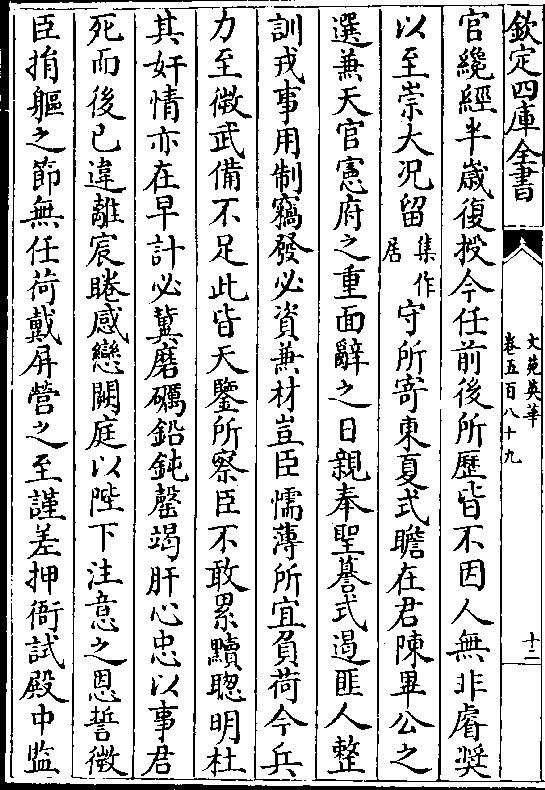 欽定四庫全書
文苑英華
卷五百八十九
十二
官纔經半歲復授今任前後所歷皆不因人無非睿奬
以至崇大況留集作居守所寄東夏式瞻在君陳畢公之
選兼天官憲府之重面辭之日親奉聖謩式遏匪人整
訓戎事用制竊發必資兼材豈臣懦薄所宜負荷今兵
力至微武備不足此皆天鑒所察臣不敢累黷聰明杜
其奸情亦在早計必冀磨礪鉛鈍罄竭肝心忠以事君
死而後已違離宸睠感戀闕庭以陛下注意之恩誓微
臣捐軀之節無任荷戴屏營之至謹差押衙試殿中監